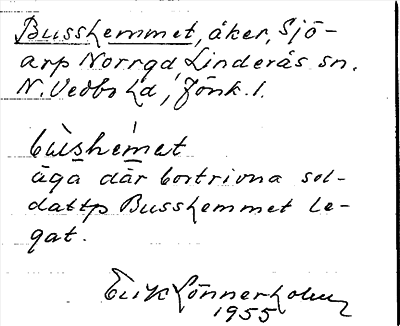 Busshemmet, åker, Sjö-
arp Norrgd Linderås sn.
N. Vedbo hd, Jönk. l.
bùshémet
äga där bortrivna sol-
dattp Busshemmet le-
gat.
Erik Lönnerholm
1955